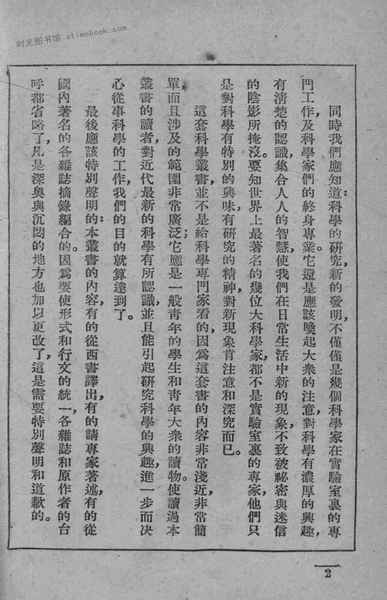 时光图书馆 atimebook.com
同時我們應知道：科學的研究，新的發明，不僅僅是幾個科學家在實驗室裏的專
門工作及科學家們的終身專業。它還是應該喚起大衆的注意，對科學有濃厚的興趣，
有清楚的認識，集合人人的智慧，使我們在日常生活中新的現象，不致被祕密與迷信
的陰影所掩沒。要知世界上最著名的幾位大科學家，都不是實驗室裏的專家，他們只
是對科學有特別的興味，有研究的精神，對新現象肯注意和深究而已。
這套科學叢書，並不是給科學專門家看的，因爲這套書的內容非常淺近，非常簡
單，而且涉及的範圍非常廣泛；它應是一般青年的學生和青年大衆的讀物。使讀過本
叢書的讀者，對近代最新的科學有所認識，並且能引起研究科學的興趣，進一步而決
心從事科學的工作，我們的目的就算達到了。
最後應該特別聲明的：本叢書的內容有的從西書譯出，有的請專家著述，有的從
國內著名的各雜誌摘錄編合的。因爲要使形式和行文的統一，各雜誌和原作者的台
呼都省略了，凡是深奧與沉悶的地方也加以更改了，這是需要特別聲明和道歉的。
2